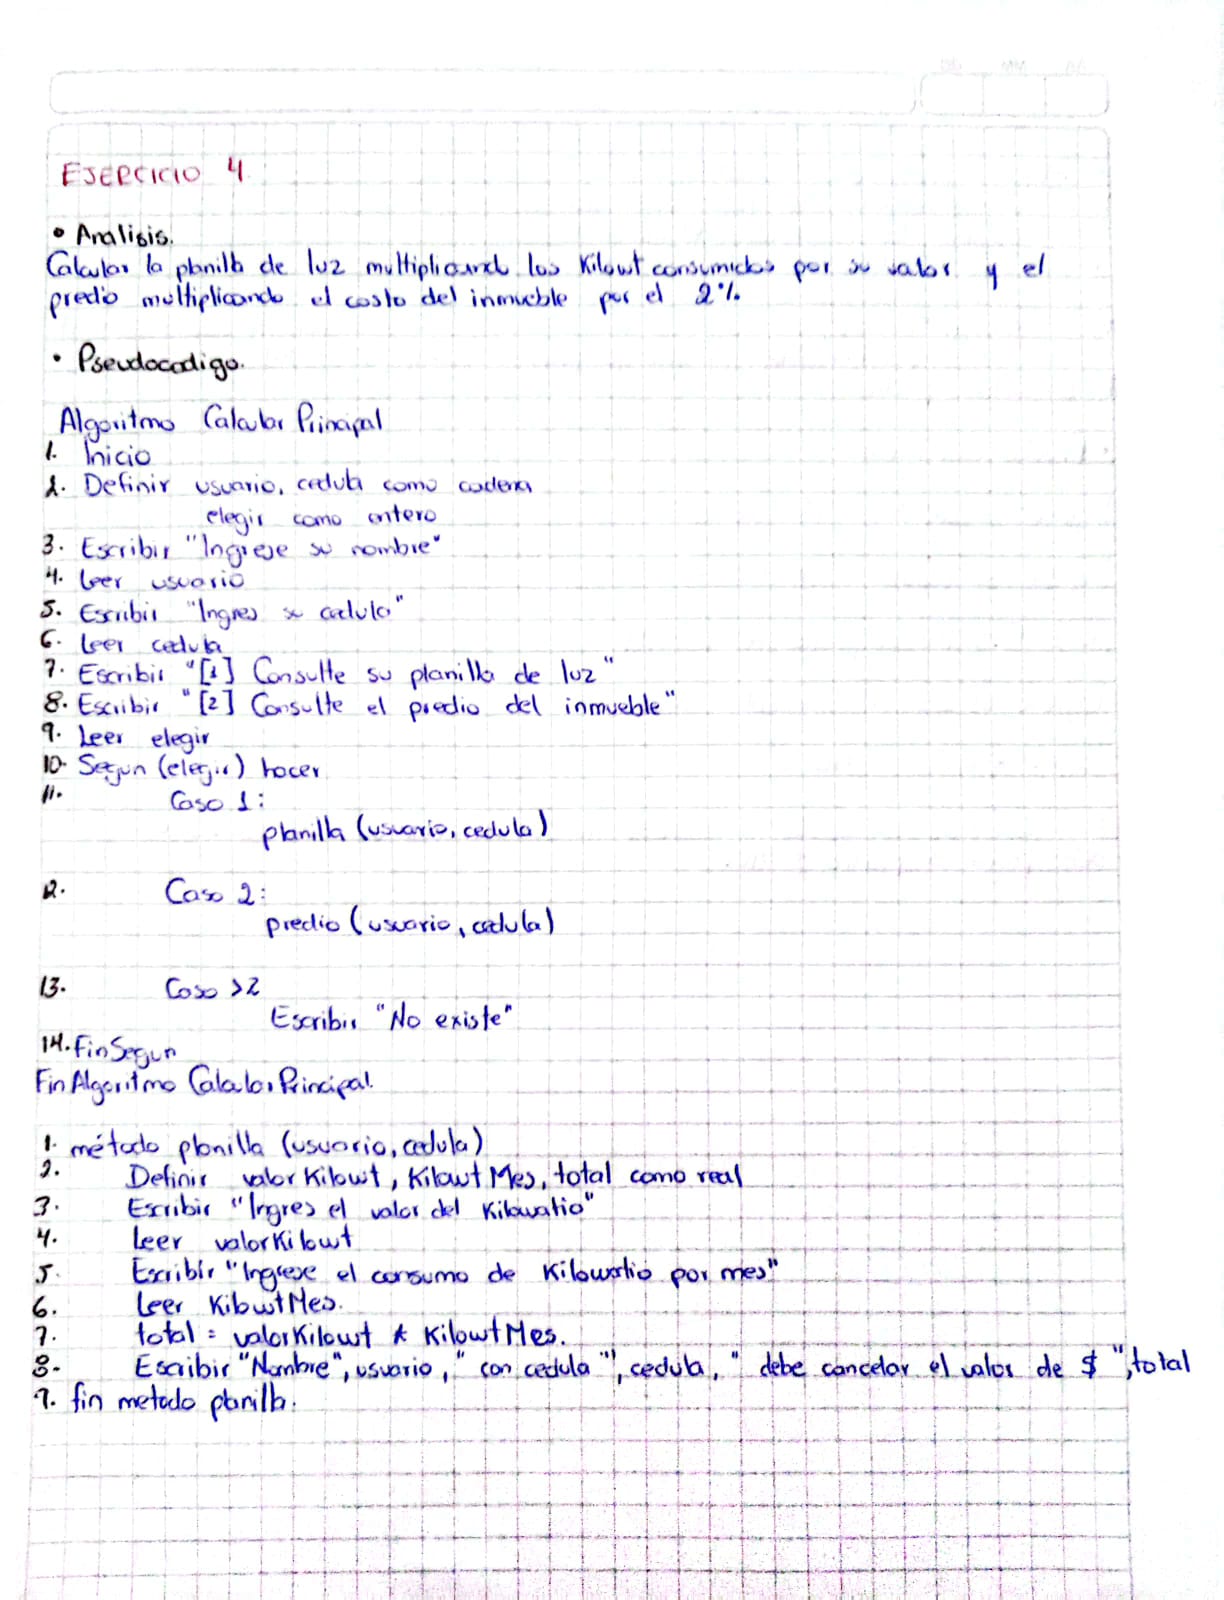 EJERCICIO 4
• Analisis.
Calcular la planilla de luz multiplicando los Kilowt consumidos por su valor y el
predio multiplicando el costo del inmueble por el 2%
• Pseudocodigo.
Algoritmo Calcular Principal
1. Inicio
2. Definir usuario, cedula como cadena
elegir como entero
3. Escribir "Ingrese su nombre"
4. Leer usuario
5. Escribir "Ingres su cedula"
6. Leer cedula
7. Escribir "[1] Consulte su planilla de luz"
8. Escribir "[2] Consulte el predio del inmueble"
9. Leer elegir
10. Segun (elegir) hacer
11. Caso 1:
planilla (usuario, cedula)
12. Caso 2:
predio (usuario, cedula)
13. Caso >2
Escribir "No existe"
14. FinSegun
Fin Algoritmo Calcular Principal.
1. método planilla (usuario, cedula)
2. Definir valorKilowt, KilowtMes, total como real
3. Escribir "Ingres el valor del Kilowatio"
4. Leer valorKilowt
5. Escribir "Ingrese el consumo de Kilowatio por mes"
6. Leer KilowtMes.
7. total = valorKilowt * KilowtMes.
8. Escribir "Nombre", usuario, " con cedula "', cedula, " debe cancelar el valor de $ ", total
9. fin metodo planilla.